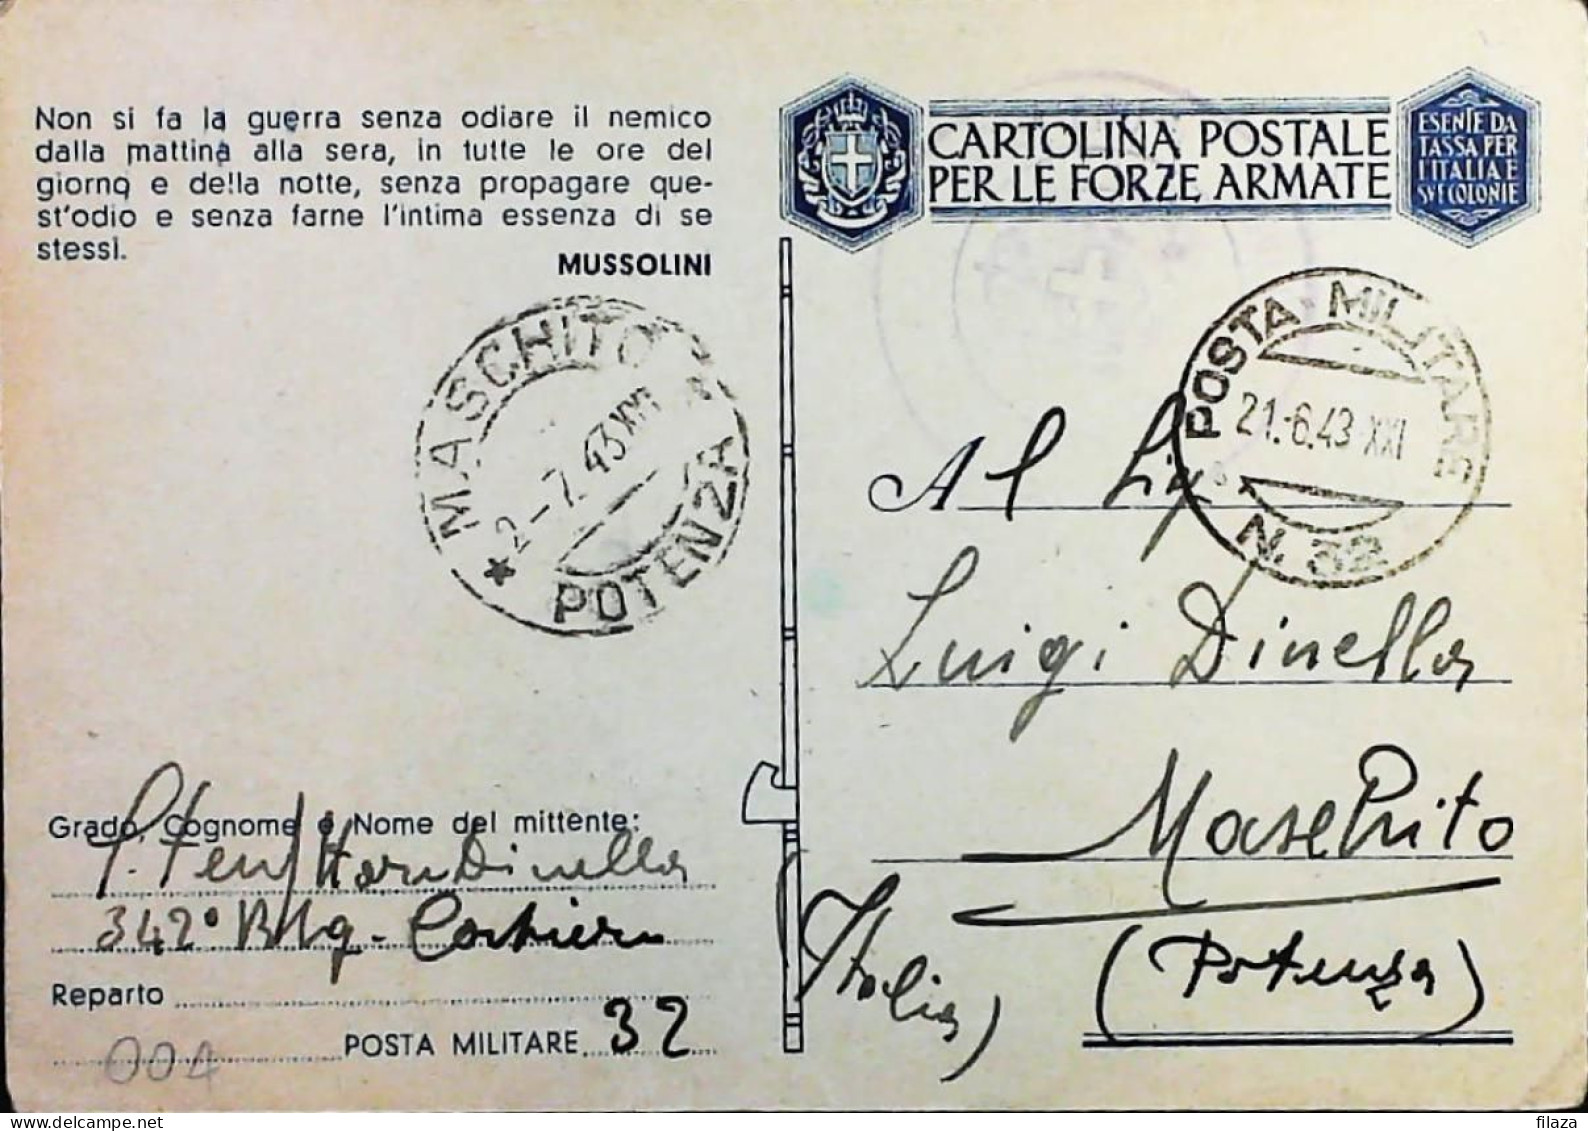 Non si fa la guerra senza odiare il nemico
dalla mattina alla sera, in tutte le ore del
giorno e della notte, senza propagare que-
st'odio e senza farne l'intima essenza di se
stessi.
MUSSOLINI
CARTOLINA POSTALE
PER LE FORZE ARMATE
ESENTE DA
TASSA PER
L'ITALIA E
SVE COLONIE
MASCHITO
2-7.43 XXI
POTENZA
POSTA MILITARE
21.-6.43-XXI
N. 32
Al Sig.
Luigi Dinella
Maschito
(Potenza)
(Italia)
Grado, Cognome e Nome del mittente:
Dinella
342° Btg. Costiero
Reparto
POSTA MILITARE 32
004
delcampe.net
filaza